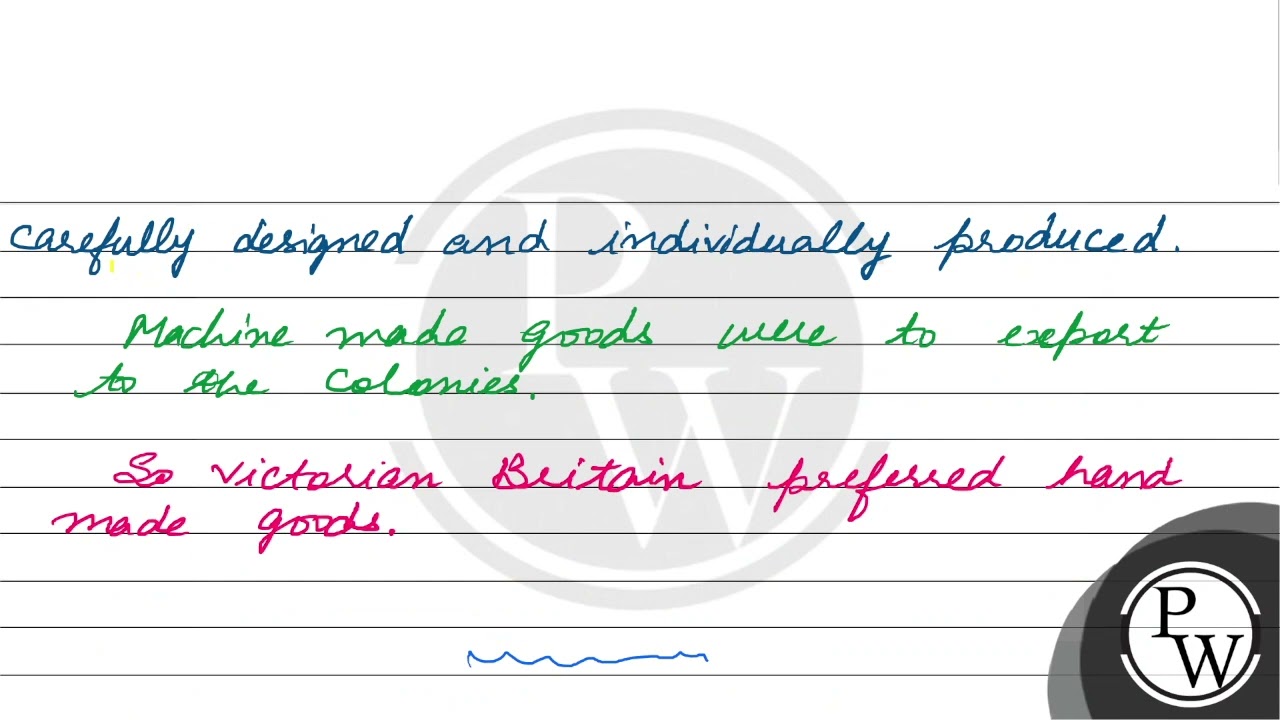 carefully designed and individually produced.
Machine made goods were to export
to the colonies.
So victorian Britain preferred hand
made goods.
PW
PW